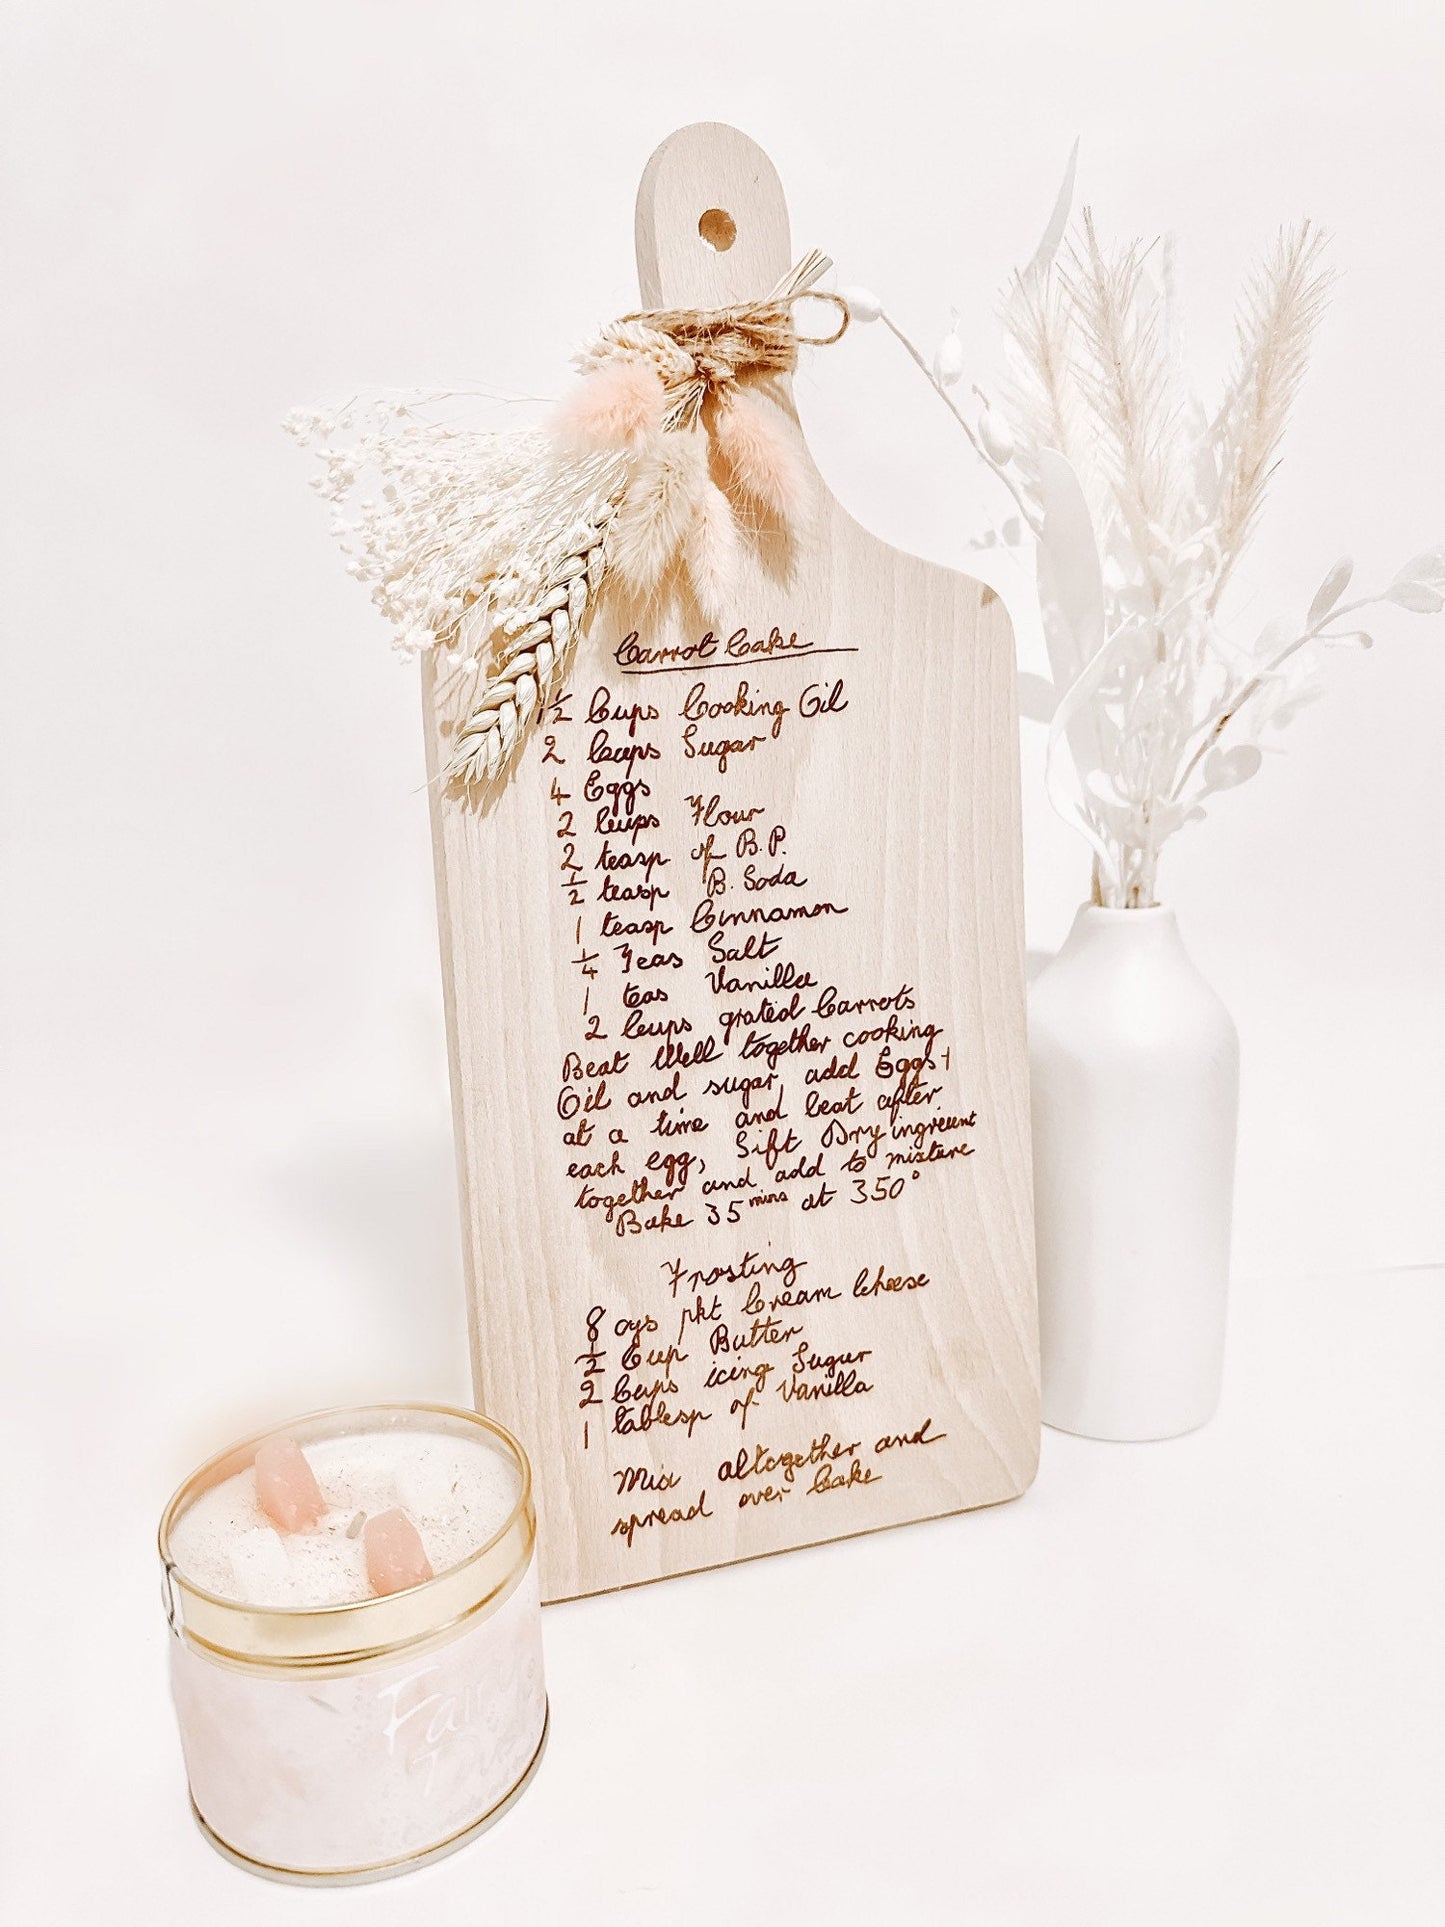 Carrot Cake
1½ Cups Cooking Oil
2 Cups Sugar
4 Eggs
2 Cups Flour
2 teasp of B.P.
½ teasp B. Soda
1 teasp Cinnamon
¼ Teas Salt
1 teas Vanilla
2 Cups grated Carrots
Beat Well together cooking
Oil and sugar, add Eggs 1
at a time and beat after
each egg, Sift Dry ingrecent
together and add to mixture
Bake 35 mins at 350°
Frosting
8 ozs pkt Cream Cheese
½ Cup Butter
2 Cups icing Sugar
1 tablesp of Vanilla
Mix altogether and
spread over Cake
Fairy